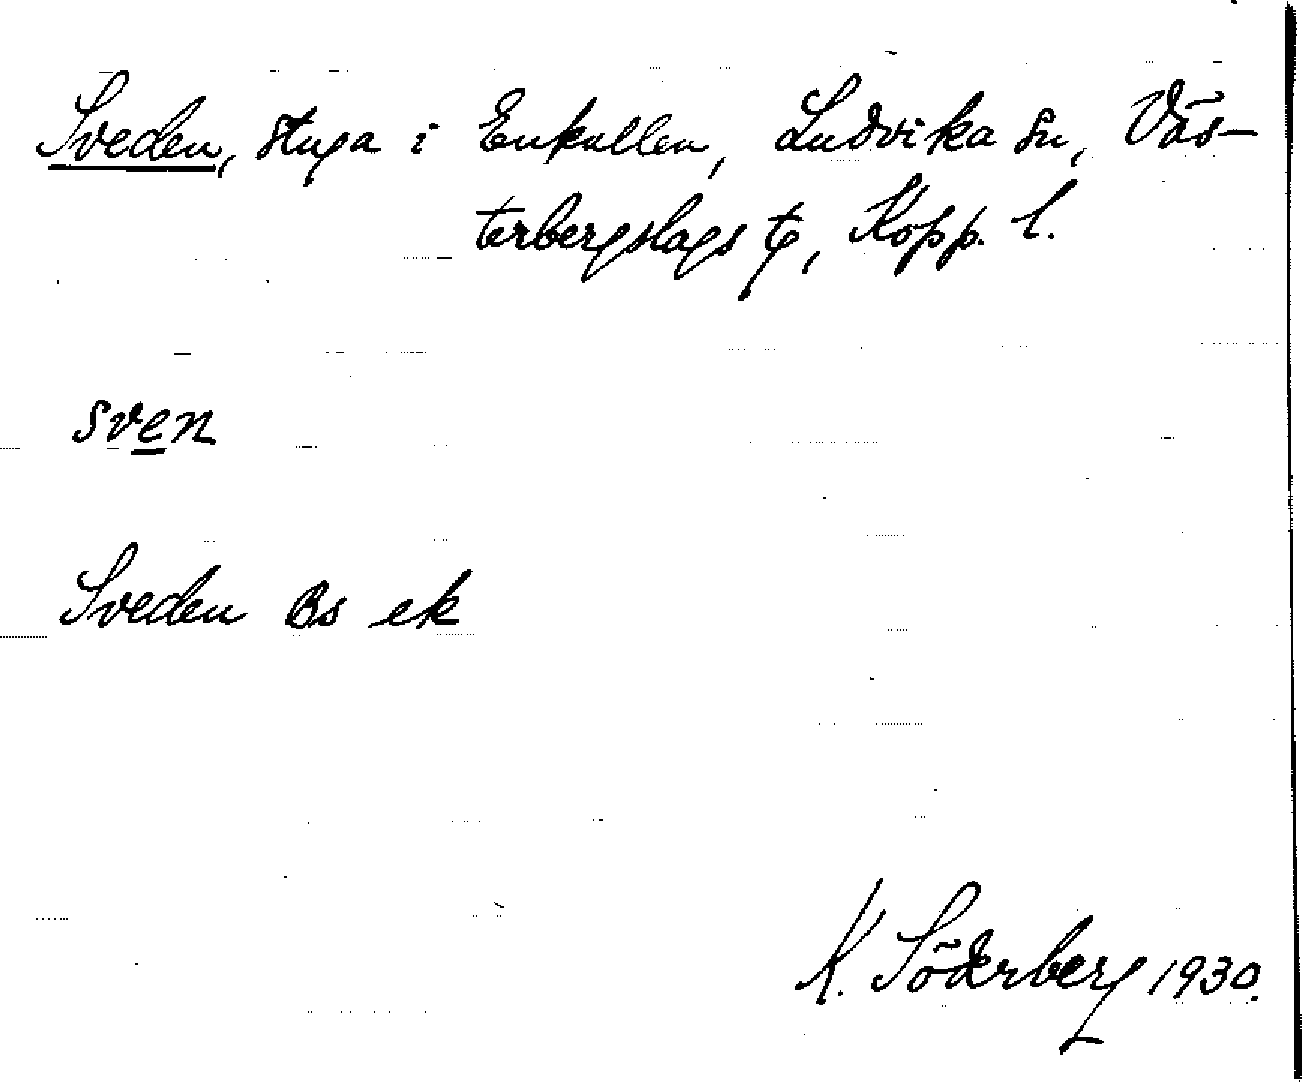 Sveden, stuga i Enkullen, Ludvika sn, Väs-
terbergslags tg, Kopp. l.
sven
Sveden Bs ek
K. Söderberg 1930.